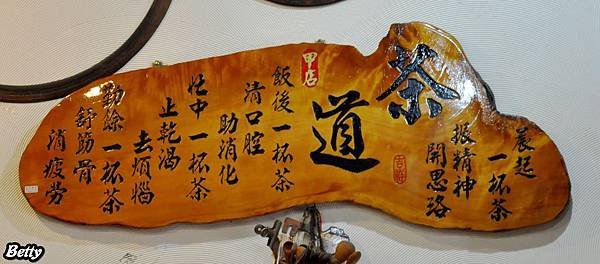 茶道
晨起
一杯茶
振精神
開思路
甲店
飯後一杯茶
清口腔
助消化
忙中一杯茶
止乾渴
去煩惱
勤餘一杯茶
舒筋骨
消疲勞
Betty